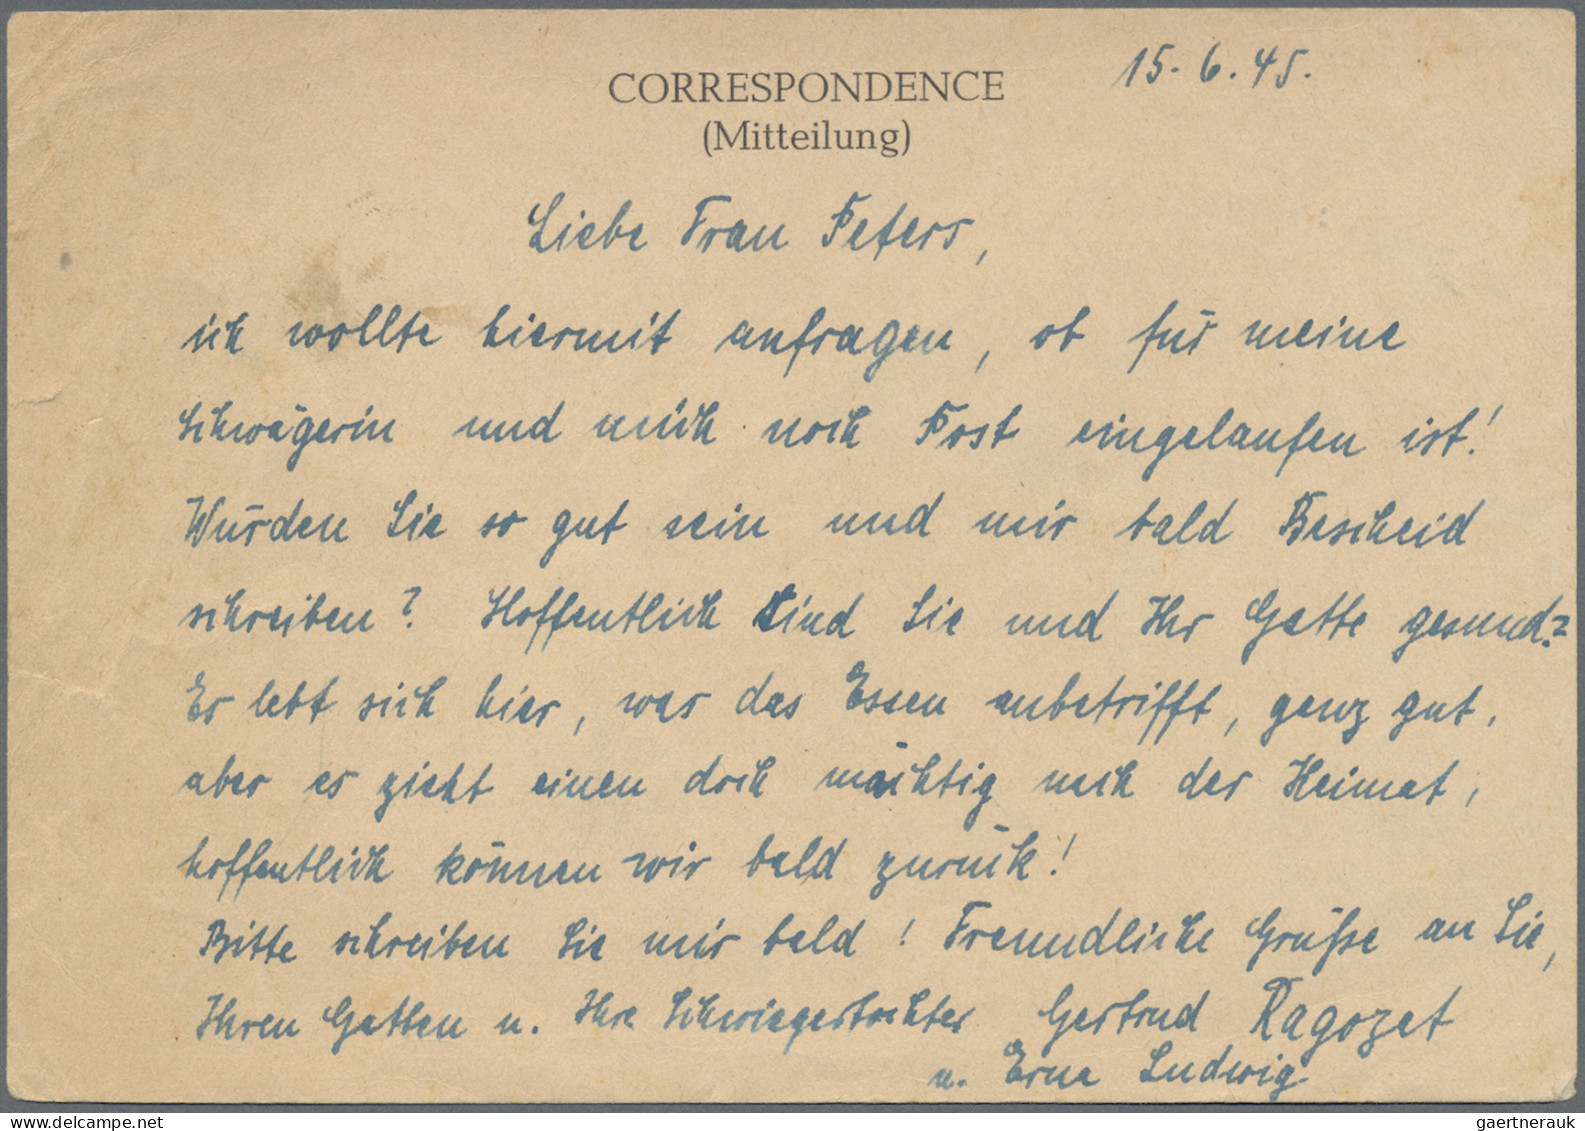 15.6.45.
CORRESPONDENCE
(Mitteilung)
Liebe Frau Peters,
ich wollte hiermit anfragen, ob für meine
Schwägerin und mich noch Post eingelaufen ist!
Würden Sie so gut sein und mir bald Bescheid
schreiben? Hoffentlich sind Sie und Ihr Gatte gesund?
Es lebt sich hier, was das Essen anbetrifft, ganz gut,
aber es zieht einen doch mächtig nach der Heimat,
hoffentlich können wir bald zurück!
Bitte schreiben Sie mir bald! Freundliche Grüße an Sie,
Ihren Gatten u. Ihre Schwiegertochter Gertrud Ragozat
u. Erna Ludwig
gaertnerauk // delcampe.net